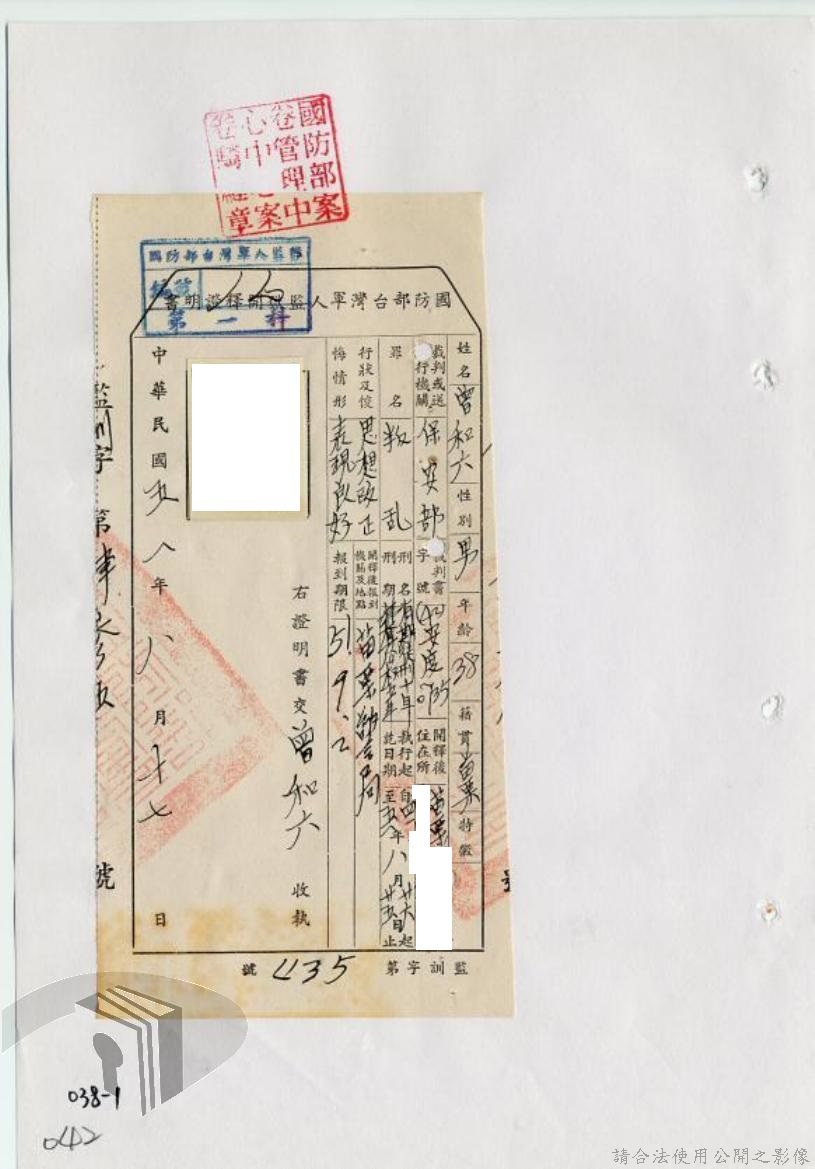 國防部案
卷管理中
心
案
章
國防部台灣軍人監獄
第一科
國防部台灣軍人監獄開釋證明書
姓名 曾和六 性別 男 年齡 38 籍貫 苗栗 特徵
裁判或送
行機關 保安部 裁判書
字號 安度 0735 開釋後
住在所 苗栗
罪名 叛乱 刑名 有期徒刑十年
刑期 執行起
訖日期 自四 年八月廿六日起
至五 年八月廿五日止
行狀及悛
悔情形 思想改正
表現良好
開釋後報到
機關及地點 苗栗警察局
報到期限 51.9.2
右證明書交 曾和六 收執
中華民國五八年八月十七日
監訓字第 號
監訓字第 435 號
038-1
042
請合法使用公開之影像